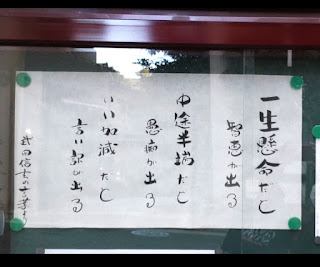 一生懸命だと
智恵が出る
中途半端だと
愚痴が出る
いい加減だと
言い訳が出る
武田信玄の言葉より